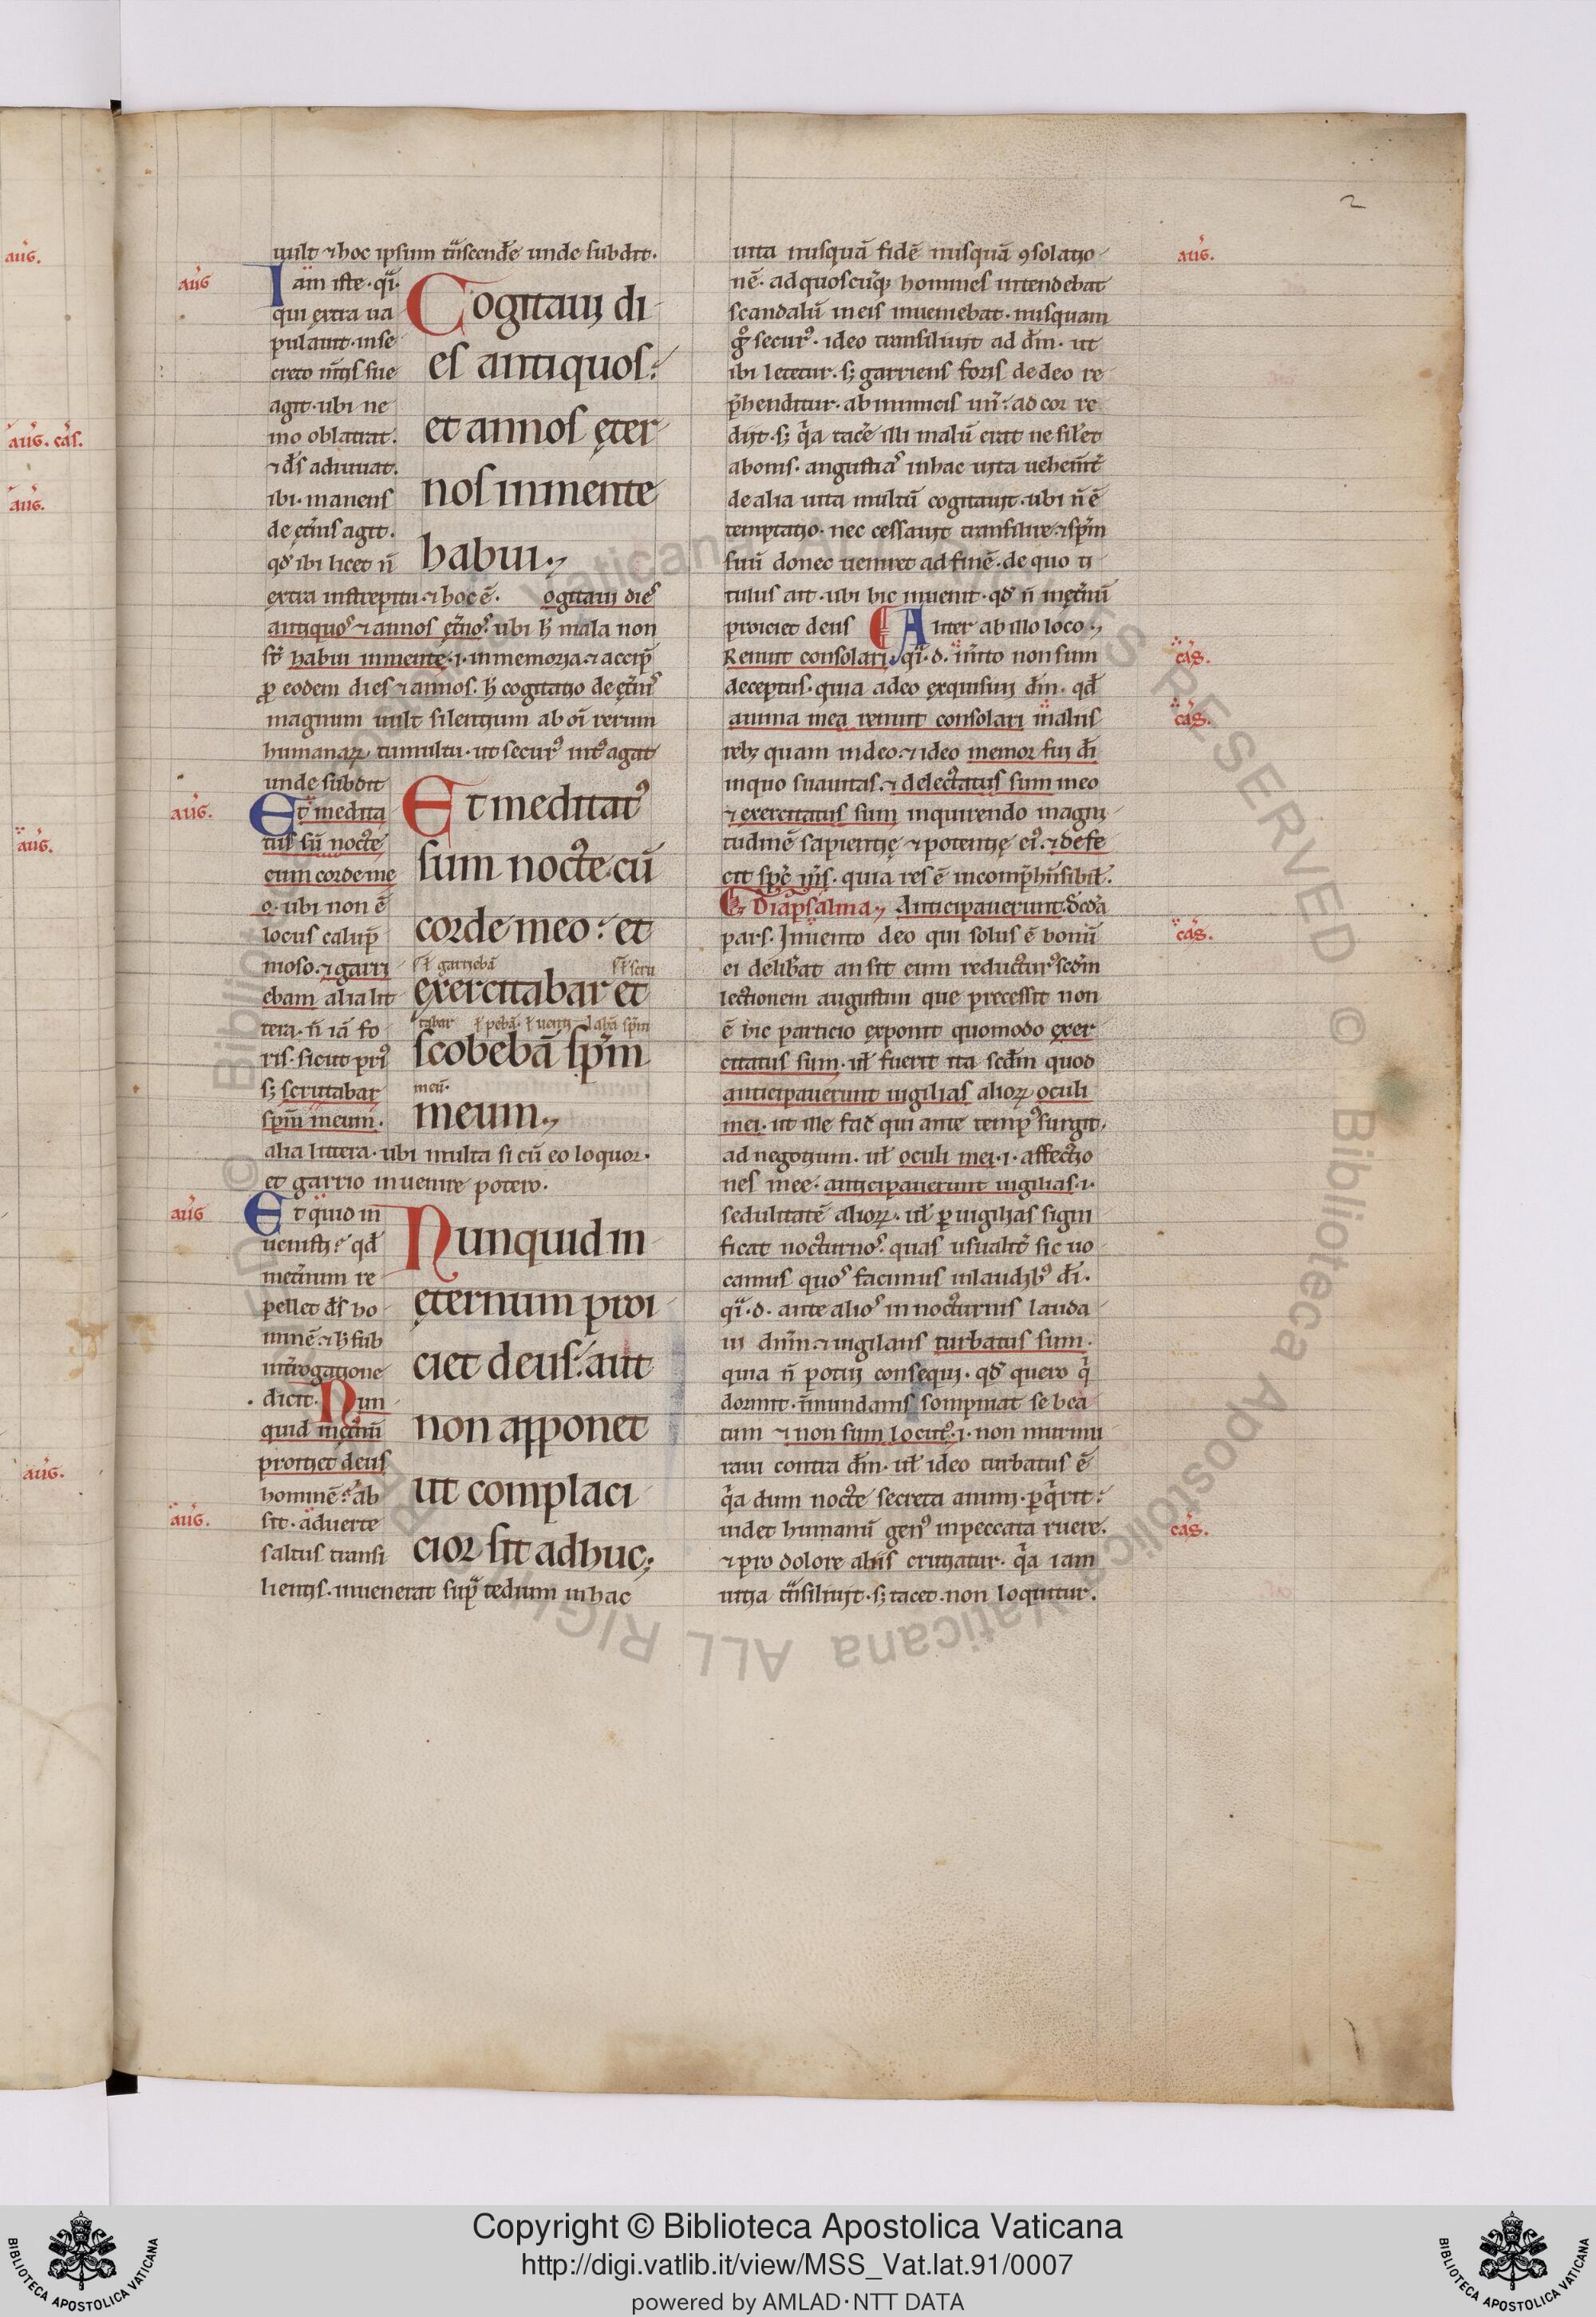 2
aug.
aug. cas.
aug.
aug.
aug.
uult ⁊ hoc ipsum tnscende͂ unde subdit.
aug
Iam iste. qi.
qui extra ua
pulauit. in se
creto mtis sue
agit. ubi ne
mo oblatrat.
⁊ ds adiuuat.
ibi. manens
de etnis agit.
qd ibi licet n̄
Cogitaui di
es antiquos:
et annos ęter
nos in mente
habui.
extra instrepitu. ⁊ hoc ē. ogitaui dies
antiquos ⁊ annos ętnos. ubi h mala non
st. habui in mente. i. in memoria. ⁊ accip
p eodem dies ⁊ annos. h cogitatio de ętnis
magnum uult silentium ab oi rerum
humanaꝝ tumultu. ut securꝰ intꝰ agat
unde subdit
aug.
Et medita
tus sū nocte
cum corde me
o. ubi non ē
locus calūp
moso. ⁊ garri
ebam alia lit
tera. n̄ iā fo
ris. sicut priꝰ
sꝫ scrutabar
spm meum.
Et meditatꝰ
sum nocte cū
corde meo: et
garriebā
exercitabar et
scobebā spm
meū.
meum.
alia littera. ubi multa si cū eo loquor.
et garrio inuenire potero.
aug
Et quid in
uenisti? qd
in etnum re
pellet ds ho
minē. ⁊ h sub
introgatione
dicit. Nun
quid in etnū
proiiciet deus
hominē? ab
aug.
sit. aduerte
saltus transi
Nunquid in
ęternum proi
ciet deus: aut
non apponet
ut complaci
cior sit adhuc;
lientis. inuenerat sup tedium in hac
uita nusquā fidē nusquā ꝯsolatio
aug.
nē. ad quoscūqꝫ homines intendebat
scandalū in eis inueniebat. nusquam
g securꝰ. ideo transiliuit ad dm. ut
ibi letetur. sꝫ garriens foris de deo re
phenditur. ab inimicis un: ad cor re
dijt. sꝫ qa tacē illi malū erat ne silet
a bonis. angustias in hac uita uehemt
de alia uita multū cogitauit. ubi n̄ ē
temptatio. nec cessauit transilire. ⁊ spm
suū donec ueniret ad finē. de quo ti
tulus ait. ubi hic inuenit. qd n̄ in etnū
proiciet deus ¶ Aliter ab illo loco.
Renuit consolari. qi. d. inito non sum
cas.
deceptus. quia adeo exquisiui dm. qd
anima mea renuit consolari in alijs
cas.
rebꝫ quam in deo. ⁊ ideo memor fui di
in quo suauitas. ⁊ delectatus sum meo
⁊ exercitatus sum inquirendo magni
tudinē sapientię ⁊ potentię eiꝰ. ⁊ defe
cit spc ms. quia res ē incomphnsibil.
Diapsalma. Anticipauerunt. Scda
pars. Inuento deo qui solus ē bonū
cas.
ei delibat an sit eum reducturꝰ scdm
lectionem augustini que precessit non
ē hic particio exponit quomodo exer
citatus sum. ul fuerit ita scdm quod
anticipauerunt uigilias alioꝝ oculi
mei. ut ille fac qui ante tempꝰ surgit.
ad negotium. ul oculi mei. i. affectio
nes mee. anticipauerunt uigilias. i.
sedulitatē alioꝝ. ul p uigilias signi
ficat nocturnos. quas usualit sic uo
camus quos facimus in laudibꝰ di.
qi. d. ante alios in nocturnis lauda
ui dnm. ⁊ uigilans turbatus sum.
quia n̄ potui consequi. qd quero q
dormit. in mundanis sompniat se bea
tum ⁊ non sum locutꝰ. i. non murmu
raui contra dm. ul ideo turbatus ē
qa dum nocte secreta animi. pqrit:
uidet humanū genꝰ in peccata ruere.
cas.
⁊ pro dolore alijs cruciatur. qa iam
uitia tnsiliuit. sꝫ tacet. non loquitur.
Copyright © Biblioteca Apostolica Vaticana
http://digi.vatlib.it/view/MSS_Vat.lat.91/0007
powered by AMLAD·NTT DATA
BIBLIOTECA APOSTOLICA VATICANA
BIBLIOTECA APOSTOLICA VATICANA